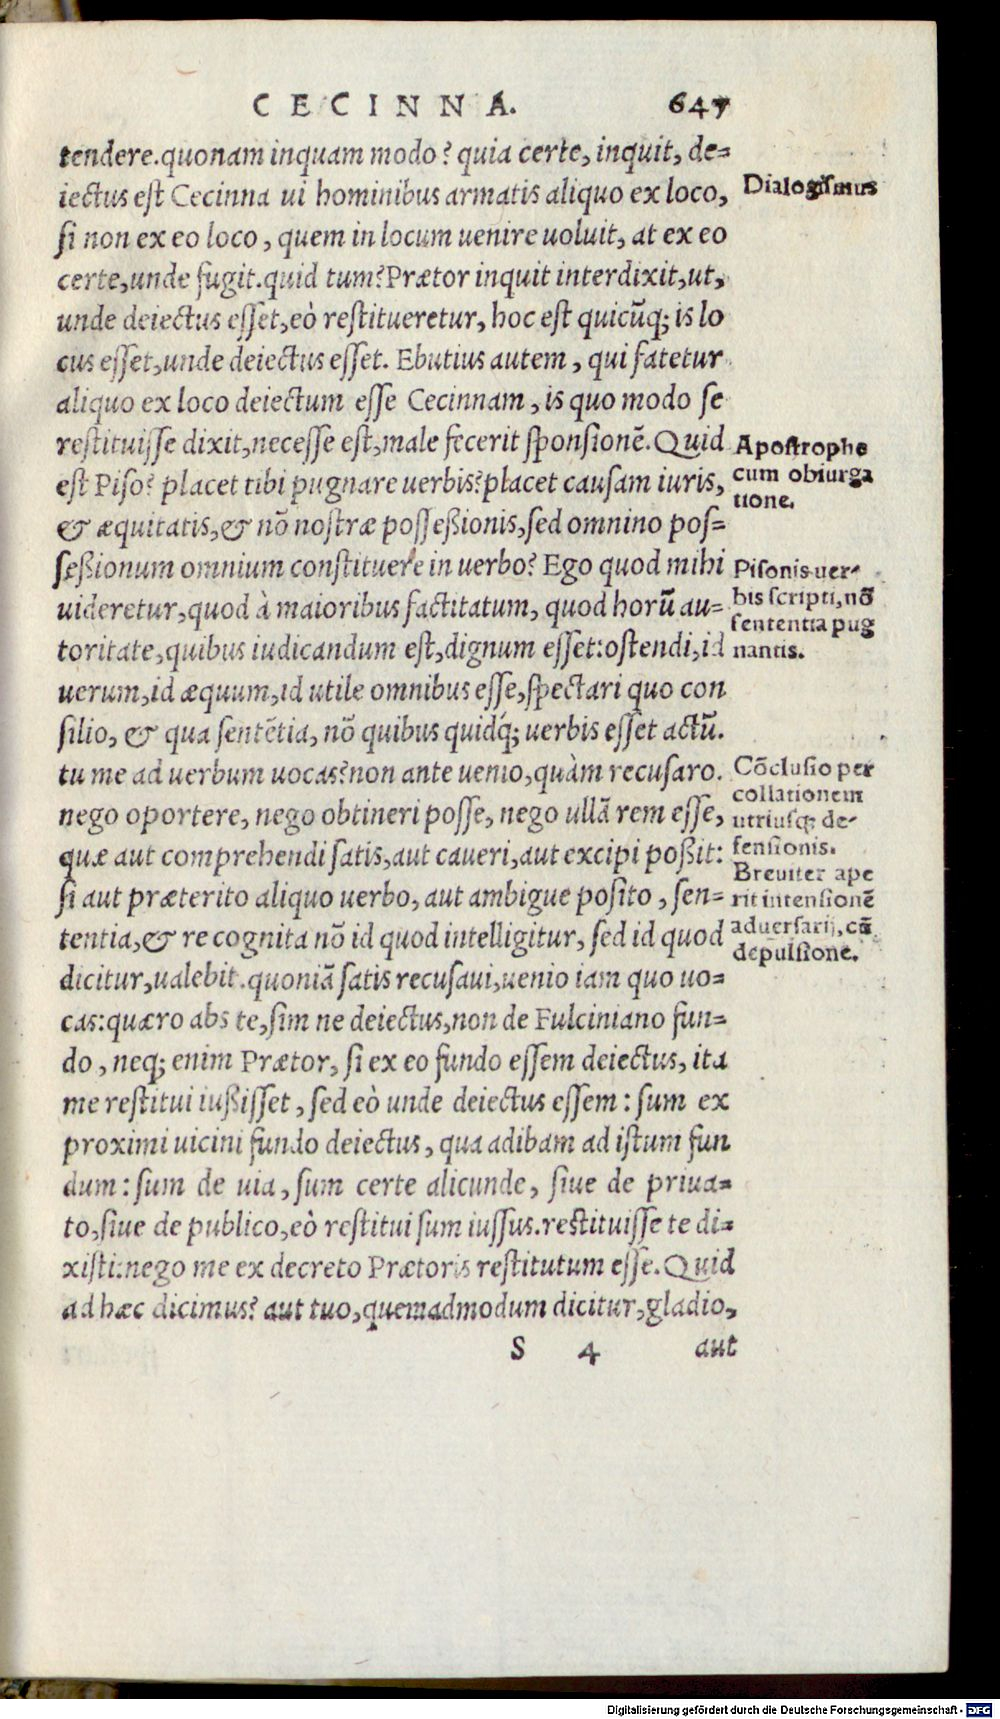 CECINNA. 647
tendere.quonam inquam modo? quia certe, inquit, de=
iectus est Cecinna ui hominibus armatis aliquo ex loco,
si non ex eo loco, quem in locum uenire uoluit, at ex eo
certe,unde fugit.quid tum? Prætor inquit interdixit,ut,
unde deiectus esset,eò restitueretur, hoc est quicũq; is lo
cus esset,unde deiectus esset. Ebutius autem, qui fatetur
aliquo ex loco deiectum esse Cecinnam, is quo modo se
restituisse dixit,necesse est,male fecerit sponsionẽ. Quid
est Piso? placet tibi pugnare uerbis?placet causam iuris,
& æquitatis,& nõ nostræ possessionis,sed omnino pos=
sessionum omnium constituere in uerbo? Ego quod mihi
uideretur,quod à maioribus factitatum, quod horũ au=
toritate,quibus iudicandum est,dignum esset:ostendi,id
uerum,id æquum,id utile omnibus esse,spectari quo con
silio, & qua sentẽtia, nõ quibus quidq́; uerbis esset actũ.
tu me ad uerbum uocas?non ante uenio,quàm recusaro.
nego oportere, nego obtineri posse, nego ullã rem esse,
quæ aut comprehendi satis,aut caueri,aut excipi possit:
si aut præterito aliquo uerbo, aut ambigue posito, sen=
tentia,& re cognita nõ id quod intelligitur, sed id quod
dicitur,ualebit.quoniã satis recusaui,uenio iam quo uo=
cas:quæro abs te,sim ne deiectus,non de Fulciniano fun=
do, neq; enim Prætor, si ex eo fundo essem deiectus, ita
me restitui iussisset, sed eò unde deiectus essem: sum ex
proximi uicini fundo deiectus, qua adibam ad istum fun
dum: sum de uia, sum certe alicunde, siue de priua=
to,siue de publico,eò restitui sum iussus.restituisse te di=
xisti:nego me ex decreto Prætoris restitutum esse. Quid
ad hæc dicimus? aut tuo,quemadmodum dicitur,gladio,
S 4 aut
Dialogismus
Apostrophe
cum obiurga
tione.
Pisonis uer-
bis scripti,nõ
sententia pug
nantis.
Cõclusio per
collationem
utriusq; de-
fensionis.
Breuiter ape
rit intensionẽ
aduersarij, cũ
depulsione.
Digitalisierung gefördert durch die Deutsche Forschungsgemeinschaft - DFG